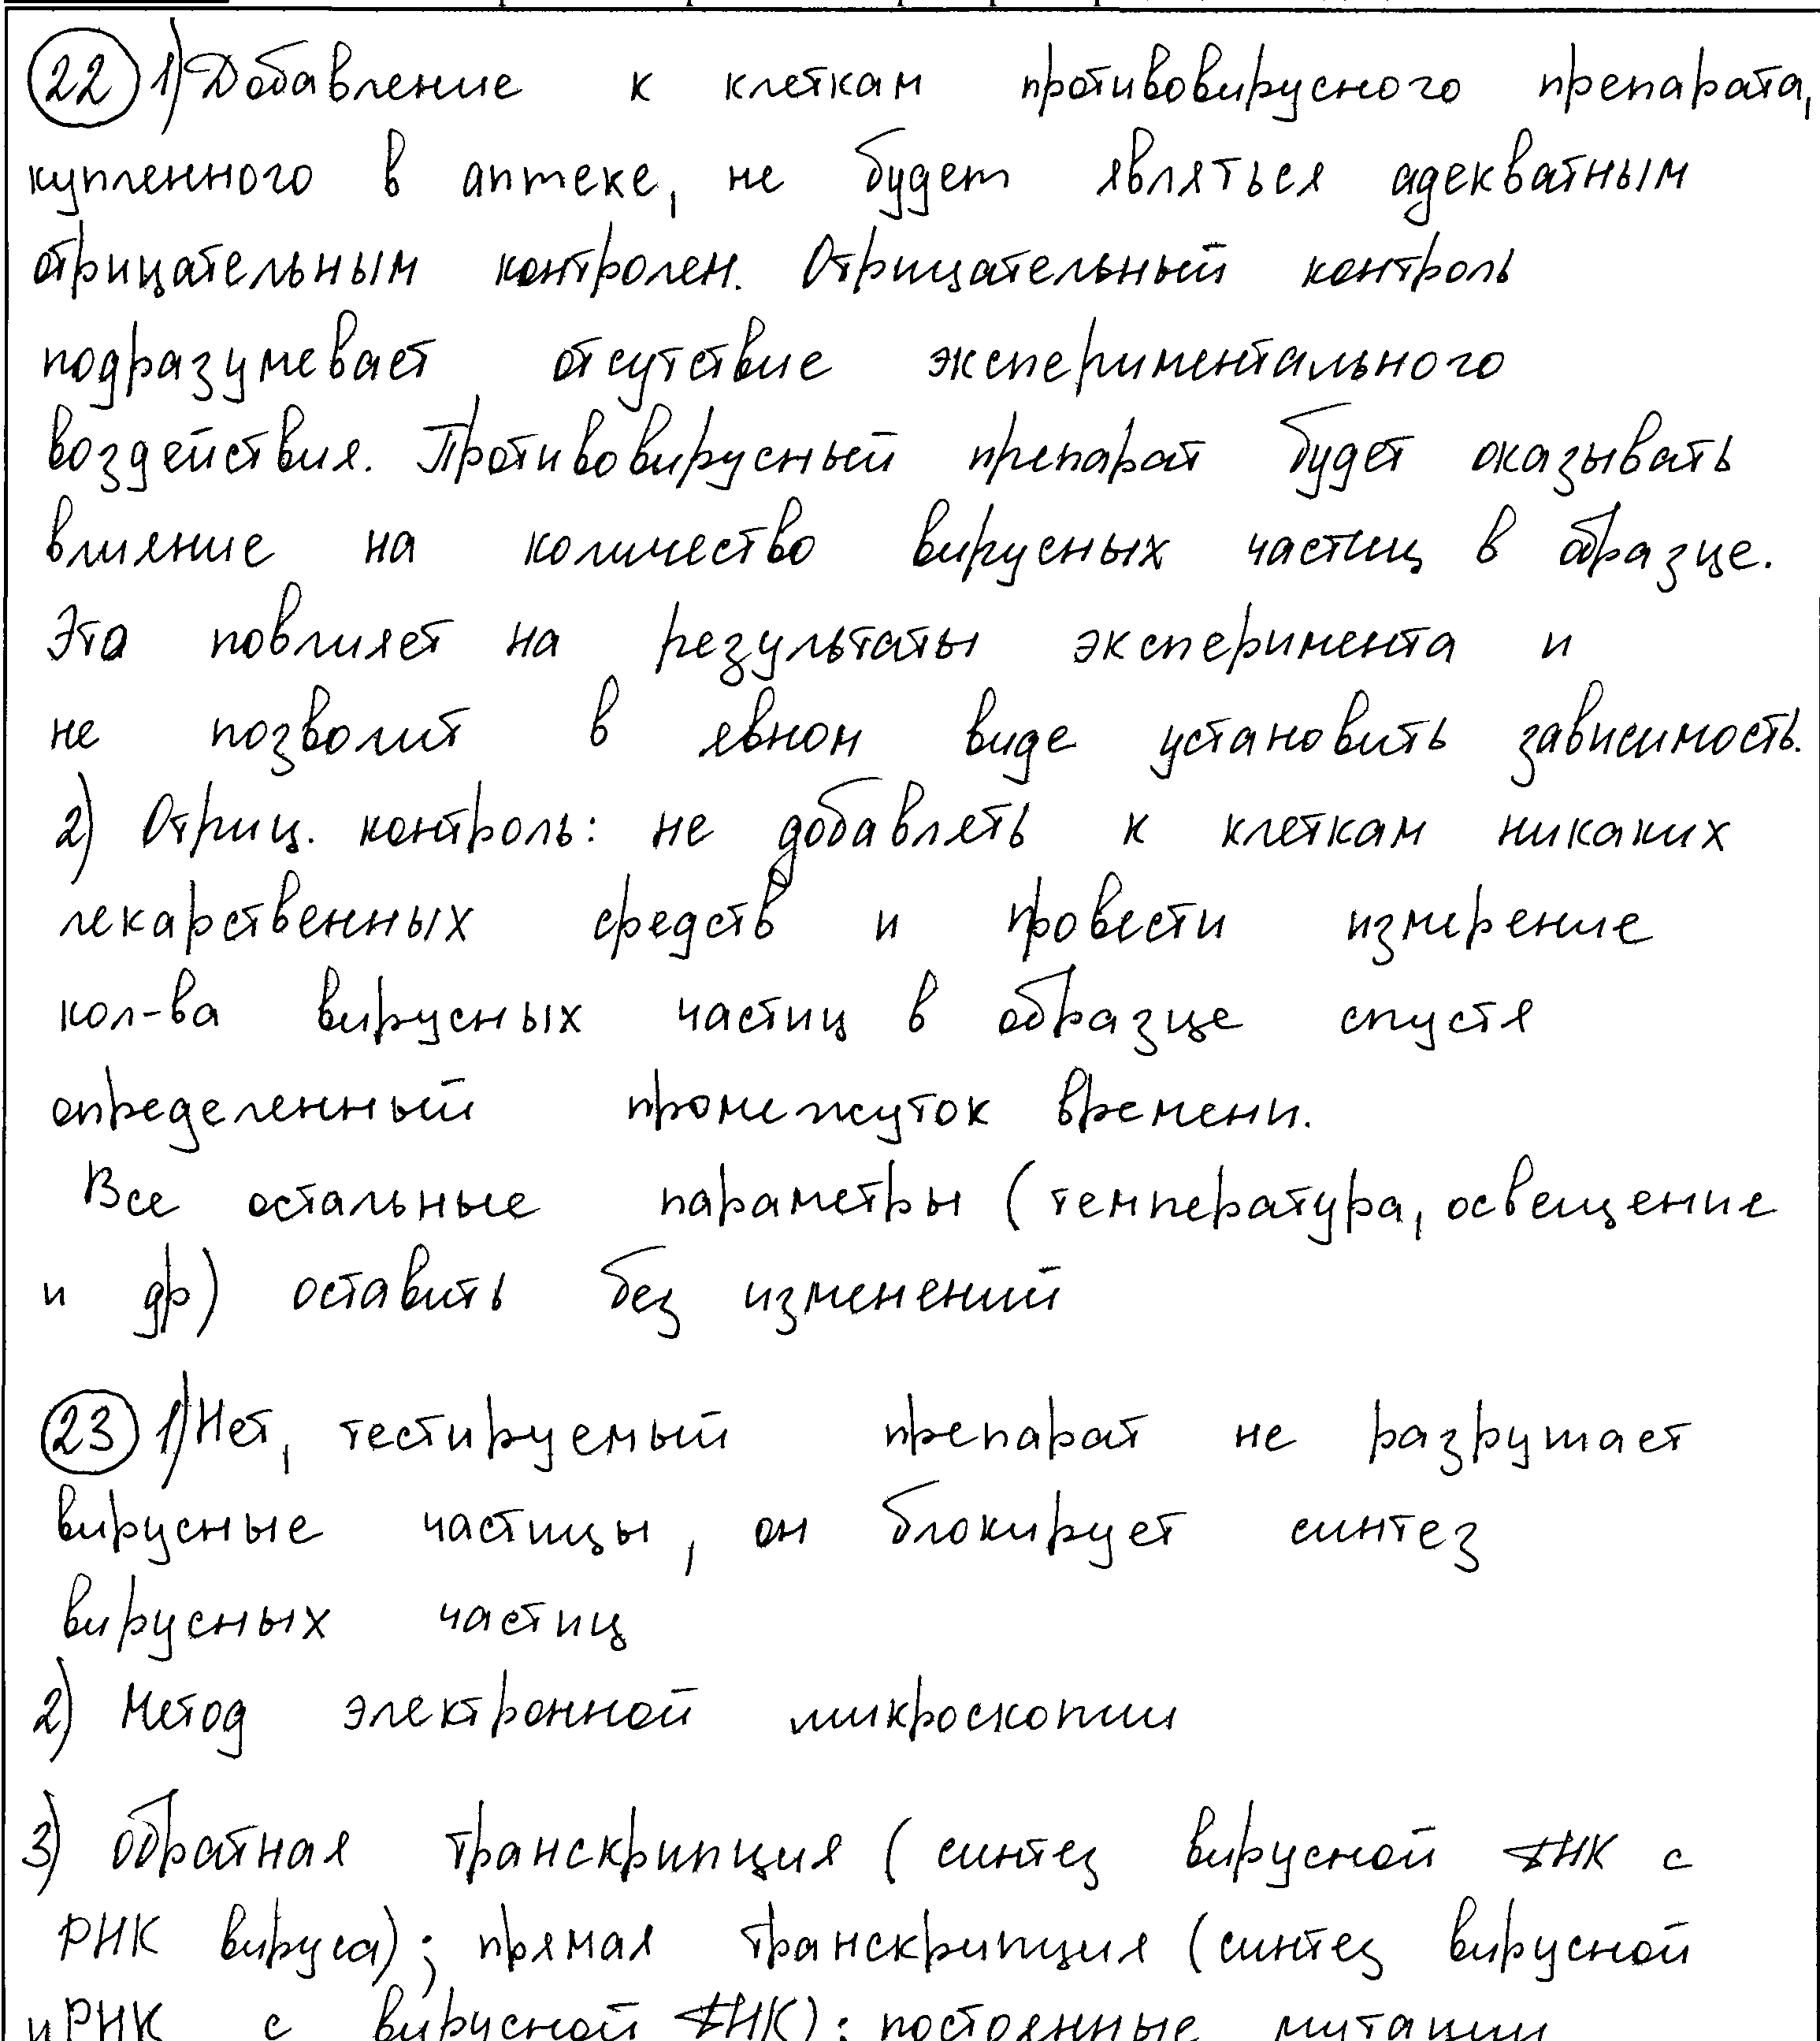 22 1) Добавление к клеткам противовирусного препарата,
купленного в аптеке, не будет являться адекватным
отрицательным контролем. Отрицательный контроль
подразумевает отсутствие экспериментального
воздействия. Противовирусный препарат будет оказывать
влияние на количество вирусных частиц в образце.
Это повлияет на результаты эксперимента и
не позволит в явном виде установить зависимость.
2) Отриц. контроль: не добавлять к клеткам никаких
лекарственных средств и провести измерение
кол-ва вирусных частиц в образце спустя
определенный промежуток времени.
Все остальные параметры (температура, освещение
и др) оставить без изменений
23 1) Нет, тестируемый препарат не разрушает
вирусные частицы, он блокирует синтез
вирусных частиц
2) Метод электронной микроскопии
3) обратная транскрипция (синтез вирусной ДНК с
РНК вируса); прямая транскрипция (синтез вирусной
иРНК с вирусной ДНК); постоянные мутации